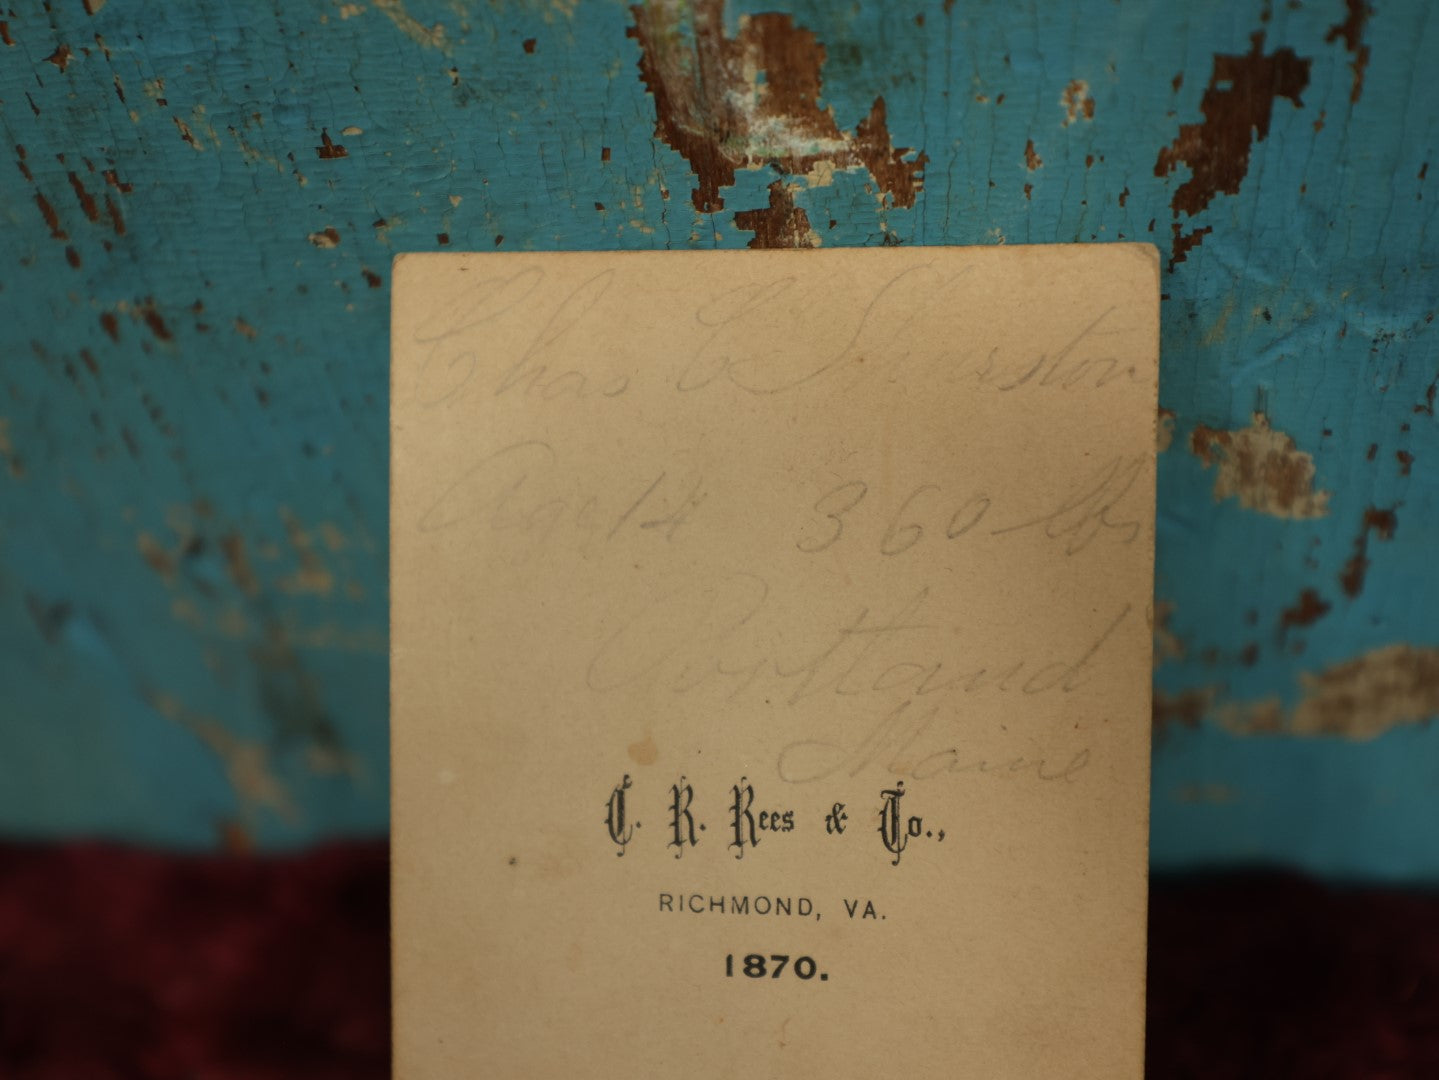 Chas C Thurston
Age 14 360 lbs
Portland
Maine
C. R. Rees & Co.,
RICHMOND, VA.
1870.